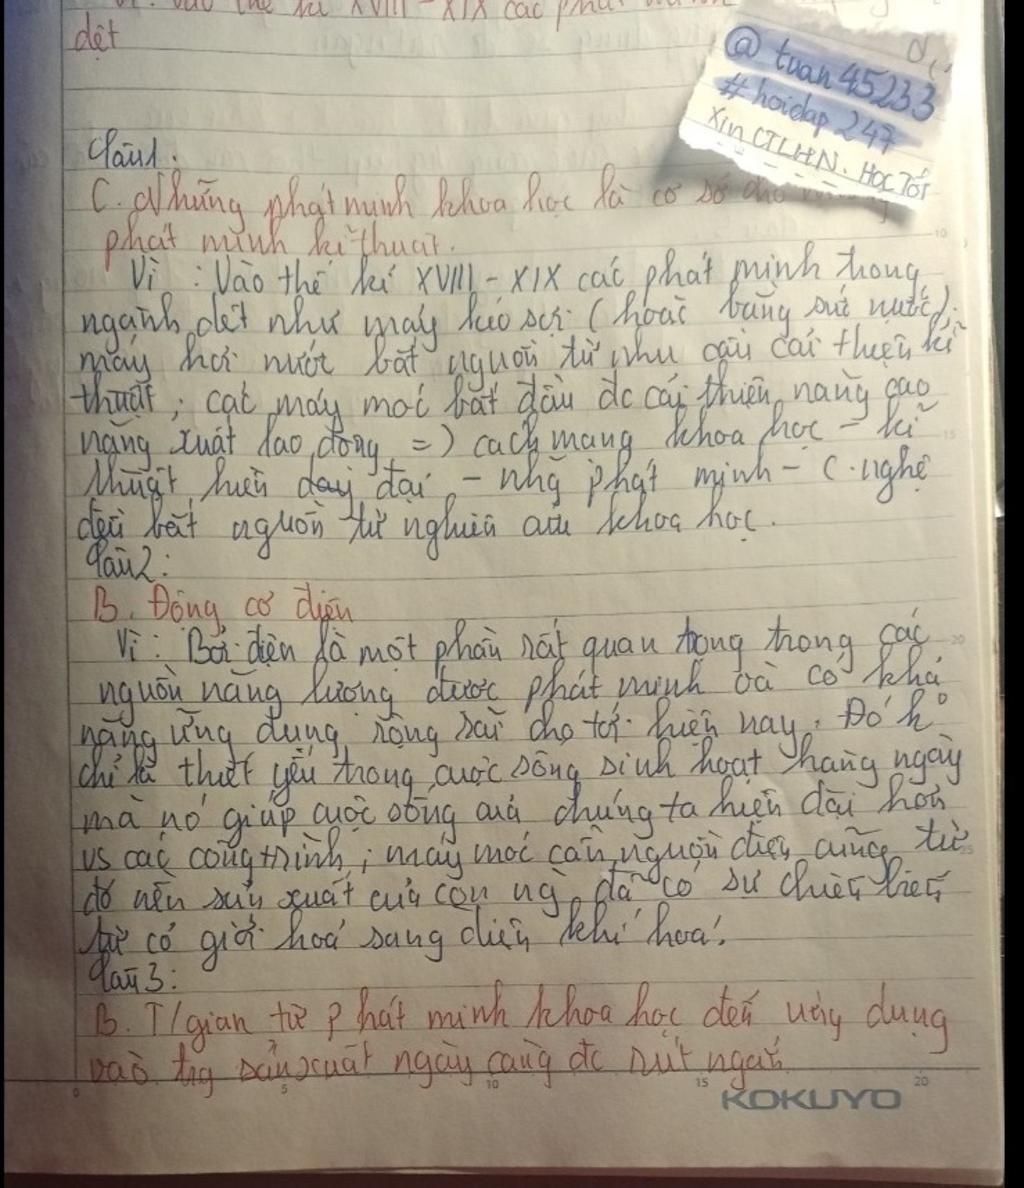 Vì: Vào thế kỉ XVIII - XIX các phát minh
dệt
@ tuan45233
# hoidap 247
Xin CTLHN. HỌC TỐT
Câu1.
C. Những phát minh khoa học là cơ sở cho
phát minh kĩ thuật.
Vì : Vào thế kỉ XVIII - XIX các phát minh trong
ngành dệt như máy kéo sợi (hoặc bằng sức nước),
máy hơi nước bắt nguồn từ nhu cầu cải thiện kĩ
thuật; các máy móc bắt đầu đc cải thiện nâng cao
năng xuất lao động => cách mạng khoa học - kĩ
thuật hiện đại - nhg phát minh - C. nghệ
đều bắt nguồn từ nghiên cứu khoa học.
Câu2:
B. Động cơ điện
Vì: Bởi điện là một phần rất quan trọng trong các
nguồn năng lượng được phát minh và có khả
năng ứng dụng rộng rãi cho tới hiện nay. Đó k
chỉ là thiết yếu trong cuộc sống sinh hoạt hàng ngày
mà nó giúp cuộc sống của chúng ta hiện đại hơn
vs các công trình; máy móc cần nguồn điện cũng từ
đó nền sản xuất của con ng đã có sự chuyển biến
từ cơ giới hoá sang điện khí hoá.
Câu3:
B. T/gian từ phát minh khoa học đến ứng dụng
vào trg sản xuất ngày càng đc rút ngắn
0 5 10 15 20
KOKUYO